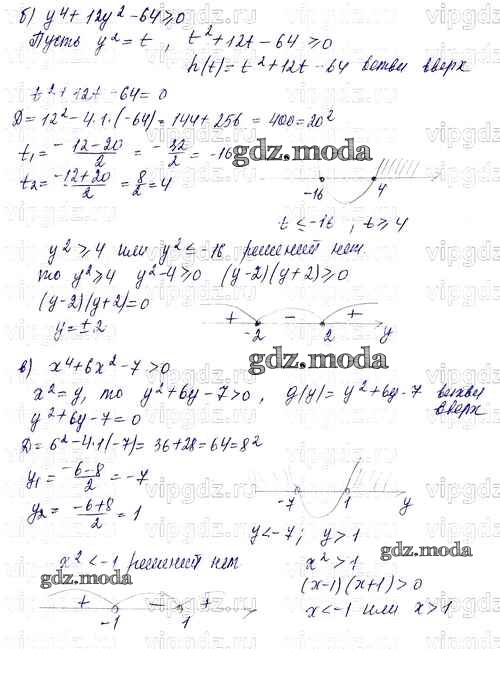 б) y⁴ + 12y² − 64 ≥ 0
Пусть y² = t , t² + 12t − 64 ≥ 0
h(t) = t² + 12t − 64 ветви вверх
t² + 12t − 64 = 0
D = 12² − 4·1·(−64) = 144 + 256 = 400 = 20²
t₁ = −12−20/2 = −32/2 = −16
gdz.moda
t₂ = −12+20/2 = 8/2 = 4
−16 4
t ≤ −16 , t ≥ 4
y² ≥ 4 или y² ≤ −16 решений нет
то y² ≥ 4 y² − 4 ≥ 0 (y−2)(y+2) ≥ 0
(y−2)(y+2) = 0
y = ± 2
+ − +
−2 2 y
gdz.moda
в) x⁴ + 6x² − 7 > 0
x² = y, то y² + 6y − 7 > 0 , g(y) = y² + 6y − 7 ветви вверх
y² + 6y − 7 = 0
D = 6² − 4·1(−7) = 36 + 28 = 64 = 8²
y₁ = −6−8/2 = −7
y₂ = −6+8/2 = 1
−7 1 y
y < −7 ; y > 1
x² < −1 решений нет
x² > 1
gdz.moda
gdz.moda
(x−1)(x+1) > 0
+ − +
−1 1
x < −1 или x > 1
vipgdz.ru